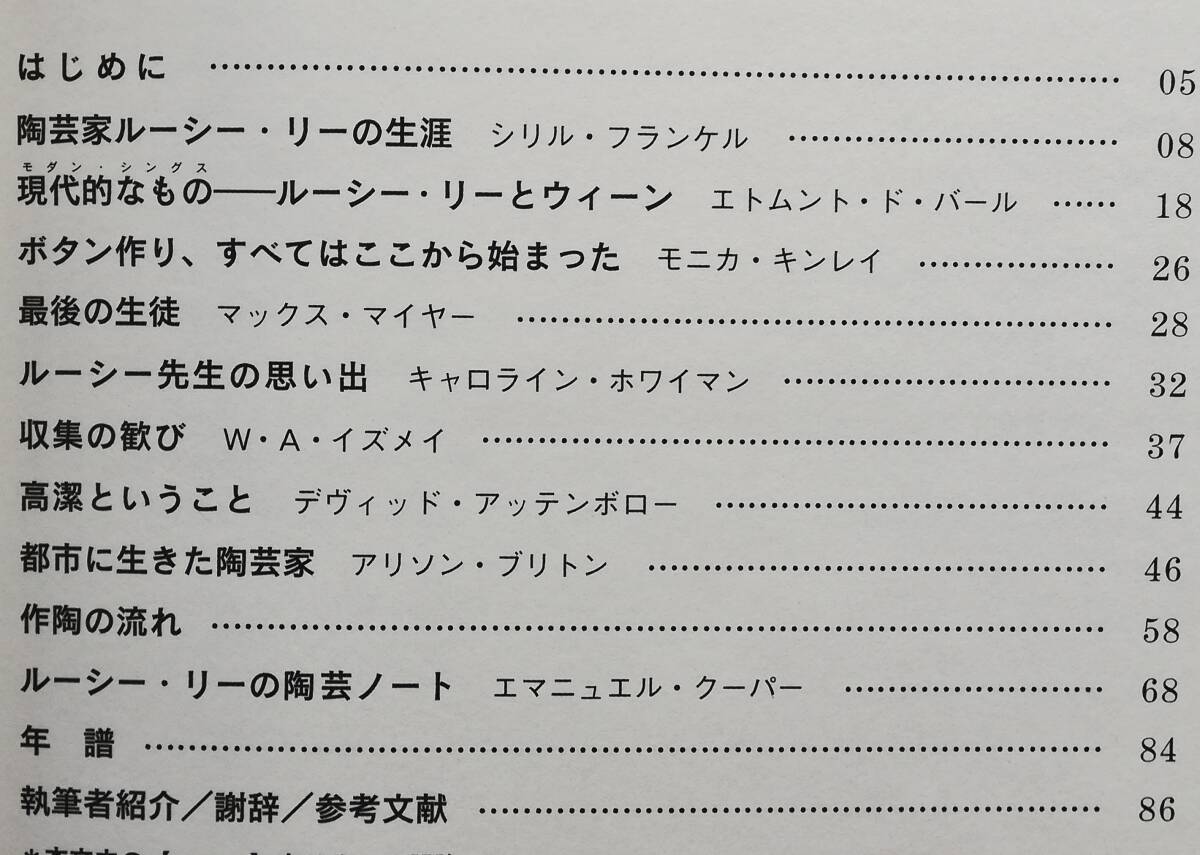 はじめに ………… 05
陶芸家ルーシー・リーの生涯 シリル・フランケル ………… 08
モダン・シングス
現代的なもの――ルーシー・リーとウィーン エトムント・ド・バール …… 18
ボタン作り、すべてはここから始まった モニカ・キンレイ ………… 26
最後の生徒 マックス・マイヤー ………… 28
ルーシー先生の思い出 キャロライン・ホワイマン ………… 32
収集の歓び W・A・イズメイ ………… 37
高潔ということ デヴィッド・アッテンボロー ………… 44
都市に生きた陶芸家 アリソン・ブリトン ………… 46
作陶の流れ ………… 58
ルーシー・リーの陶芸ノート エマニュエル・クーパー ………… 68
年 譜 ………… 84
執筆者紹介／謝辞／参考文献 ………… 86